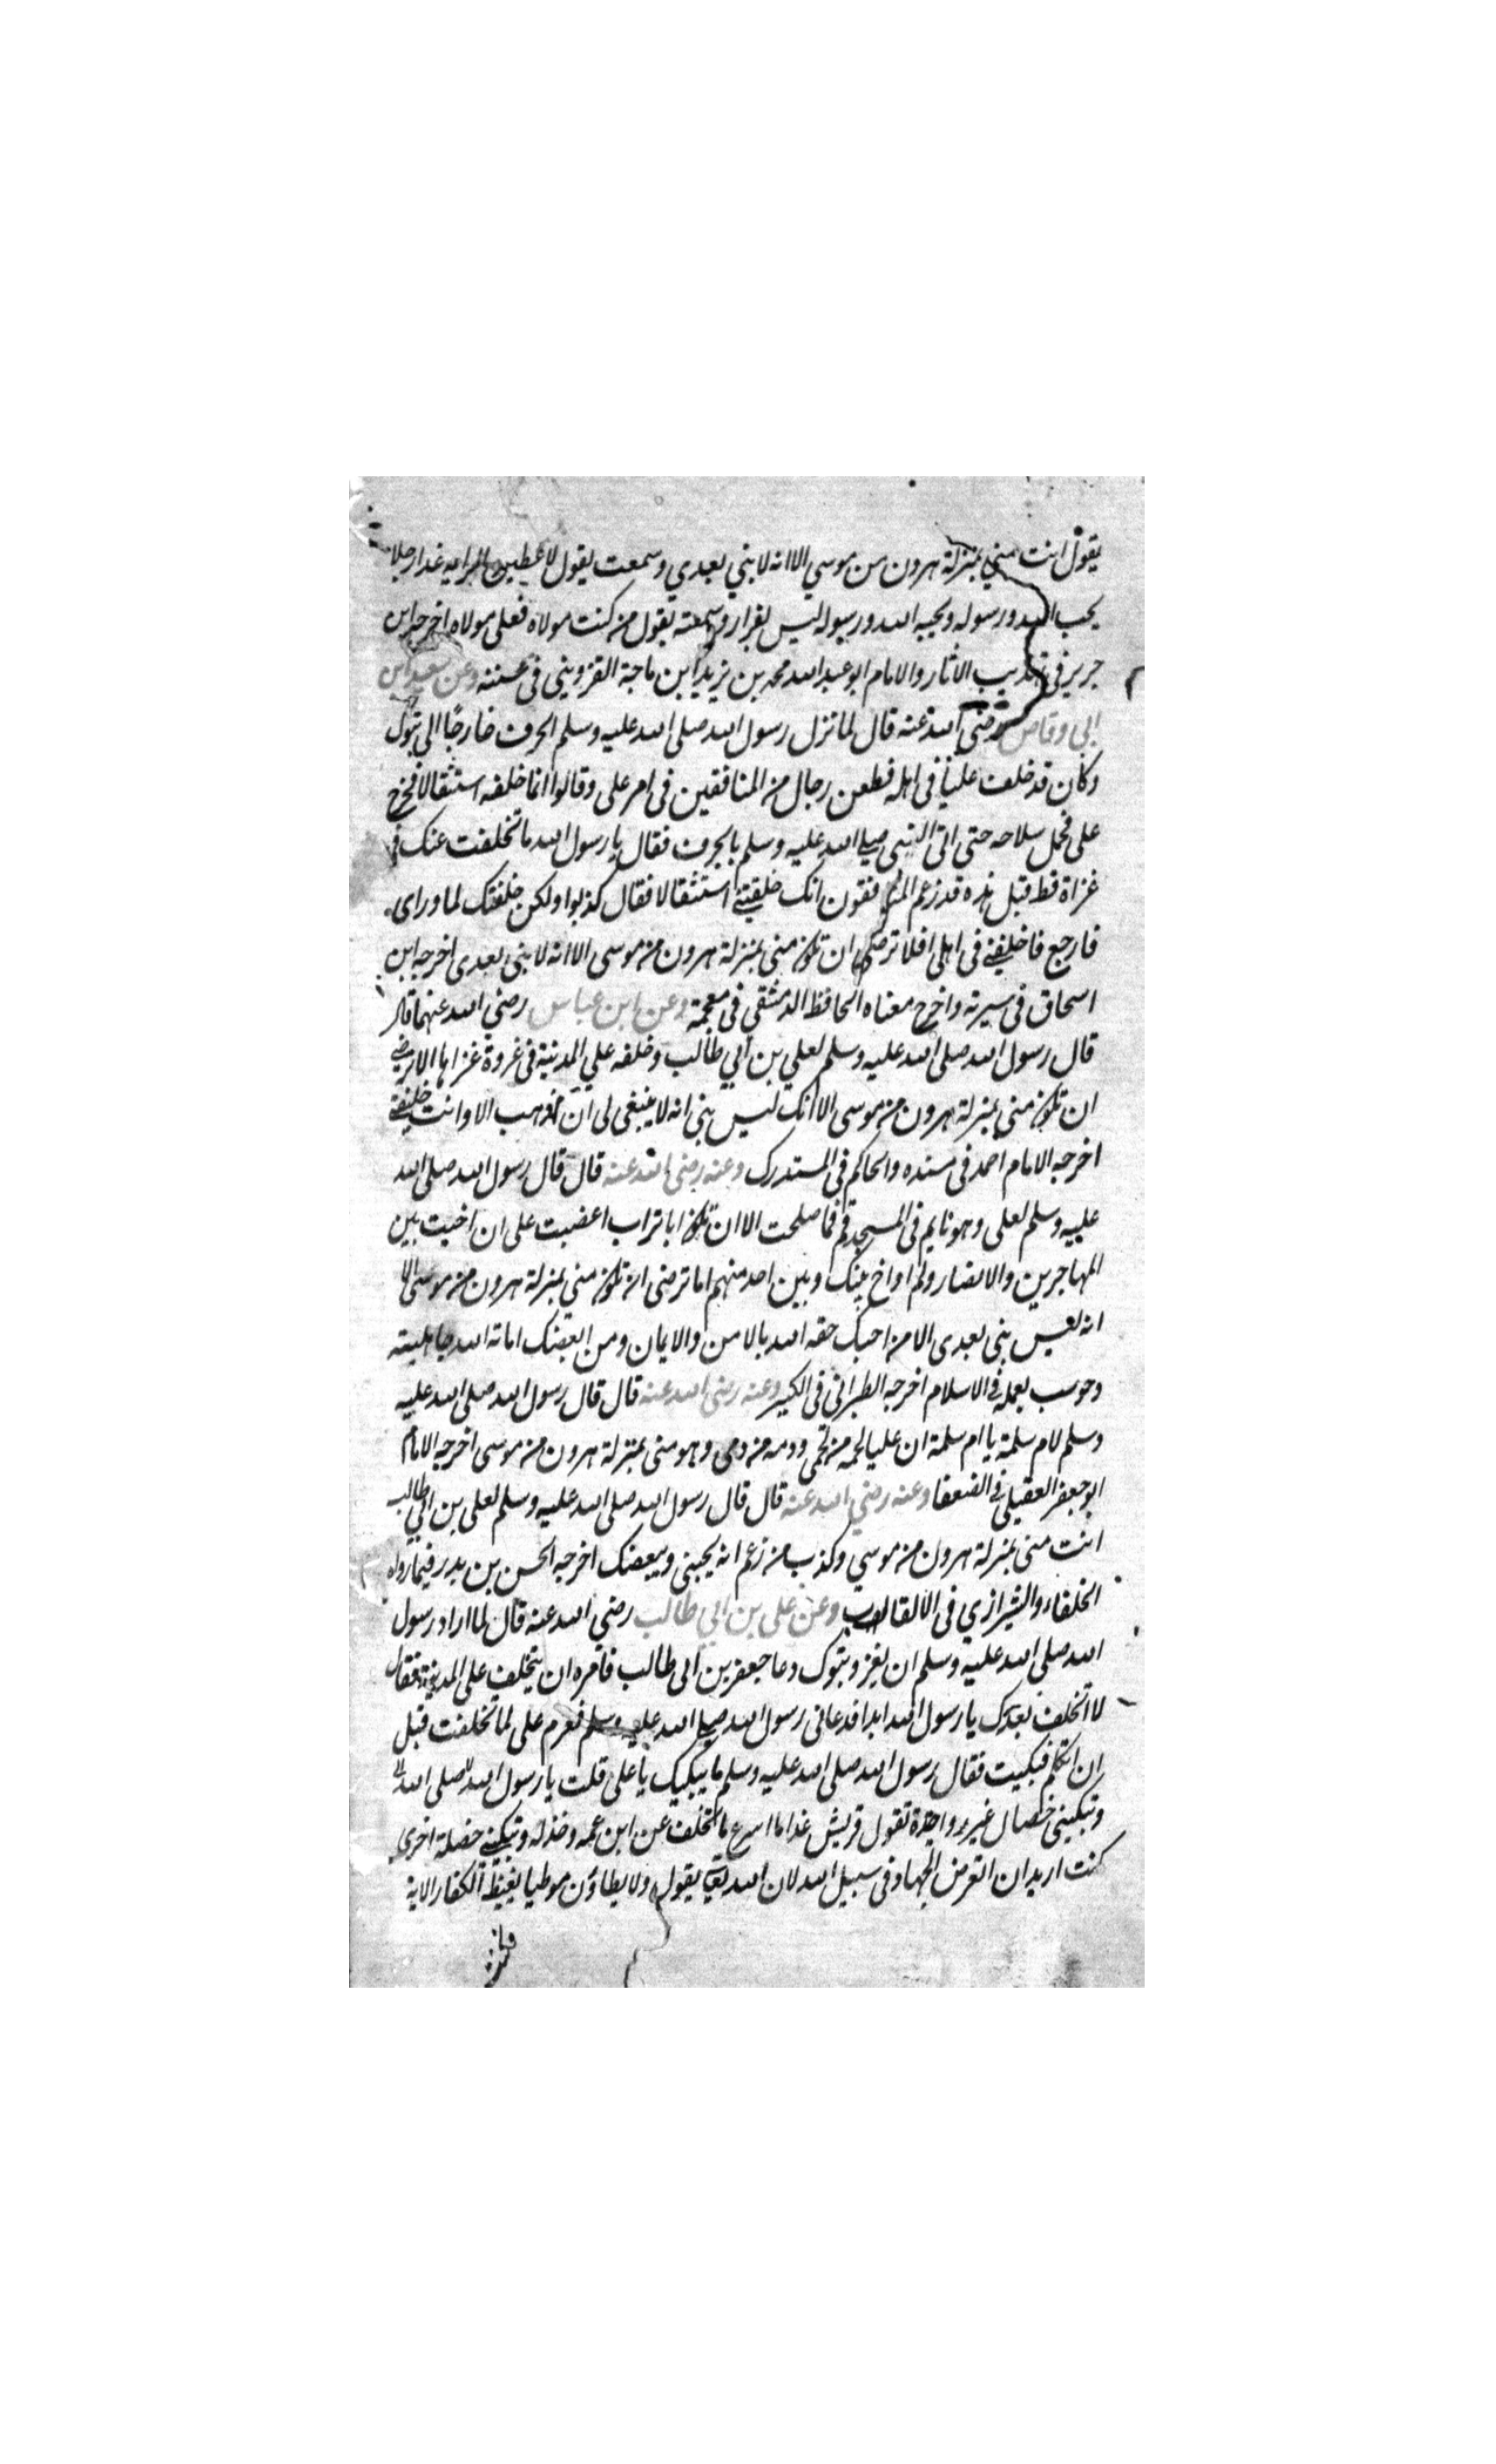 يقول انت مني بمنزلة هرون من موسي الا انه لا نبي بعدي وسمعت يقول لاعطين الراية غدا رجلا
يحب الله ورسوله ويحبه الله ورسوله ليس بفرار وسمعته يقول من كنت مولاه فعلي مولاه اخرجه ابن
جرير في تهذيب الاثار والامام ابو عبد الله محمد بن يزيد ابن ماجة القزويني في سننه وعن سعد ابن
ابي وقاص رضي الله عنه قال لما نزل رسول الله صلى الله عليه وسلم الجرف خارجًا الى تبوك
وكان قد خلف عليًا في اهله فطعن رجال من المنافقين في امر علي وقالوا انما خلفه استثقالا فخرج
علي فحمل سلاحه حتى اتى النبي صلى الله عليه وسلم بالجرف فقال يا رسول الله ما تخلفت عنك في
غزاة قط قبل هذه قد زعم المنافقون انك خلفتني استثقالا فقال كذبوا ولكن خلفتك لما وراي
فارجع فاخلفني في اهلي افلا ترضى ان تكون مني بمنزلة هرون من موسى الا انه لا نبي بعدي اخرجه ابن
اسحاق في سيرته واخرج معناه الحافظ الدمشقي في معجمه وعن ابن عباس رضي الله عنهما قال
قال رسول الله صلى الله عليه وسلم لعلي بن ابي طالب وخلفه علي المدينة في غزوة غزاها الا ترضى
ان تكون مني بمنزلة هرون من موسى الا انك ليس بنبي انه لا ينبغي لي ان اذهب الا وانت خليفتي
اخرجه الامام احمد في مسنده والحاكم في المستدرك وعنه رضي الله عنه قال قال رسول الله صلى الله
عليه وسلم لعلي وهو نايم في المسجد قم فما صلحت الا ان تكون ابا تراب اغضبت علي ان اخيت بين
المهاجرين والانصار ولم اواخ بينك وبين احد منهم اما ترضى ان تكون مني بمنزلة هرون من موسى الا
انه ليس نبي بعدي الا من احبك حفه الله بالامن والايمان ومن ابغضك اماته الله جاهلية
وحوسب بعمله في الاسلام اخرجه الطبراني في الكبير وعنه رضي الله عنه قال قال رسول الله صلى الله عليه
وسلم لام سلمة يا ام سلمة ان عليا لحمه من لحمي ودمه من دمي وهو مني بمنزلة هرون من موسى اخرجه الامام
ابو جعفر العقيلي في الضعفا وعنه رضي الله عنه قال قال رسول الله صلى الله عليه وسلم لعلي بن ابي طالب
انت مني بمنزلة هرون من موسي وكذب من زعم انه يحبني ويبغضك اخرجه الحسن بن بدر فيما رواه
الخلفاء والشيرازي في الالقاب وعن علي بن ابي طالب رضي الله عنه قال لما اراد رسول
الله صلى الله عليه وسلم ان يغزو تبوك دعا جعفر بن ابي طالب فامره ان يتخلف على المدينة فقال
لا اتخلف بعدك يا رسول الله ابدا فدعاني رسول الله صلى الله عليه وسلم فعزم علي لما تخلفت قبل
ان اتكلم فبكيت فقال رسول الله صلى الله عليه وسلم ما يبكيك يا علي قلت يا رسول الله صلى الله
ويبكيني خصال غير واحدة تقول قريش غدا ما اسرع ما تخلف عن ابن عمه وخذله ويبكيني خصلة اخرى
كنت اريد ان اتعرض الجهاد في سبيل الله لان الله تعالى يقول ولا يطاؤن موطيا يغيظ الكفار الاية